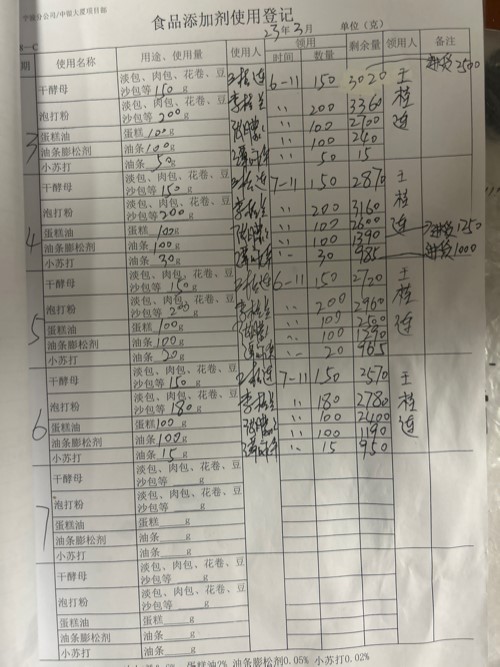 食品添加剂使用登记
23年3月 单位（克）
期 使用名称 用途、使用量 使用人 领用 剩余量 领用人 备注
时间 数量
3
干酵母 淡包、肉包、花卷、豆沙包等150g 6-11 150 3020 王桂连 2500
泡打粉 淡包、肉包、花卷、豆沙包等200g 〃 200 3360
蛋糕油 蛋糕100g 〃 100 2700
油条膨松剂 油条100g 〃 100 240
小苏打 油条50g 〃 50 15
4
干酵母 淡包、肉包、花卷、豆沙包等150g 7-11 150 2870 王桂连
泡打粉 淡包、肉包、花卷、豆沙包等200g 〃 200 3160
蛋糕油 蛋糕100g 〃 100 2600
油条膨松剂 油条100g 〃 100 1390 1250
小苏打 油条30g 〃 30 985 1000
5
干酵母 淡包、肉包、花卷、豆沙包等150g 6-11 150 2720 王桂连
泡打粉 淡包、肉包、花卷、豆沙包等200g 〃 200 2960
蛋糕油 蛋糕100g 〃 100 2500
油条膨松剂 油条100g 〃 100 1290
小苏打 油条20g 〃 20 965
6
干酵母 淡包、肉包、花卷、豆沙包等150g 7-11 150 2570 王桂连
泡打粉 淡包、肉包、花卷、豆沙包等180g 〃 180 2780
蛋糕油 蛋糕100g 〃 100 2400
油条膨松剂 油条100g 〃 100 1190
小苏打 油条15g 〃 15 950
7
干酵母 淡包、肉包、花卷、豆沙包等____g
泡打粉 淡包、肉包、花卷、豆沙包等____g
蛋糕油 蛋糕____g
油条膨松剂 油条____g
小苏打 油条____g
干酵母 淡包、肉包、花卷、豆沙包等____g
泡打粉 淡包、肉包、花卷、豆沙包等____g
蛋糕油 蛋糕____g
油条膨松剂 油条____g
小苏打 油条____g
蛋糕油2% 油条膨松剂0.05% 小苏打0.02%